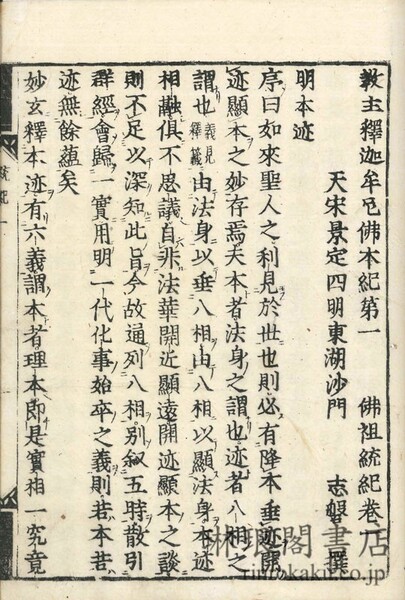 教主釋迦牟尼佛本紀第一　佛祖統紀卷一
天宋景定四明東湖沙門　志磐　撰
明本迹
序曰如來聖人之利見於世也則必有降本垂迹開
迹顯本之妙存焉夫本者法身之謂也迹者八相之
謂也義見釋籤由法身以垂八相由八相以顯法身本迹
相融俱不思議自非法華開近顯遠開迹顯本之談
則不足以深知此旨今故通列八相別敘五時散引
群經會歸一實用明一代化事始卒之義則若本若
迹無餘蘊矣
妙玄釋本迹有六義謂本者理本即是實相一究竟
琳琅閣書店
rinrokaku.co.jp